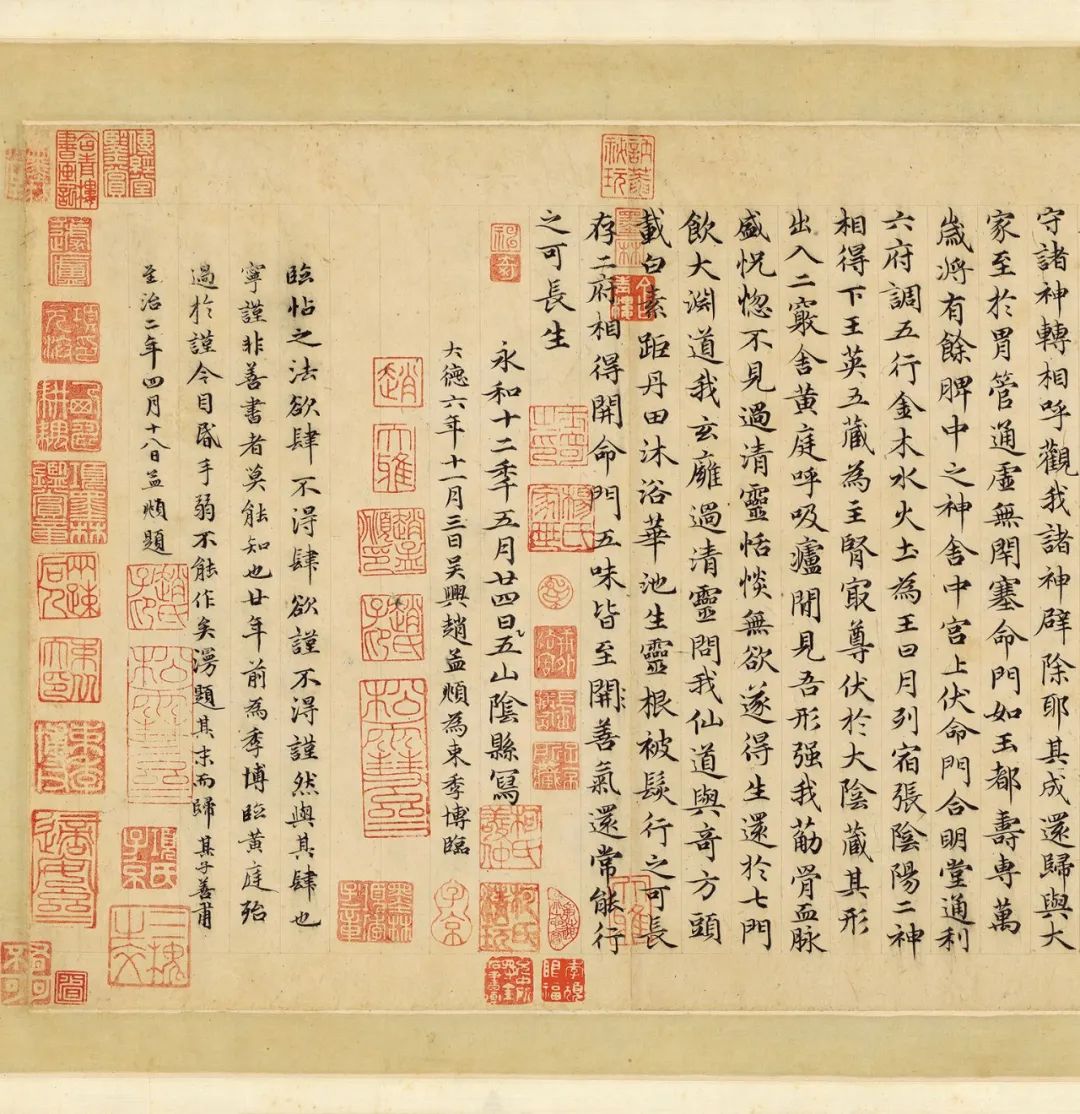 守諸神轉相呼觀我諸神辟除耶其成還歸與大
家至於胃管通虛無閇塞命門如玉都壽專萬
歲將有餘脾中之神舍中宮上伏命門合明堂通利
六府調五行金木水火土為王日月列宿張陰陽二神
相得下玉英五藏為主腎寂尊伏於大陰藏其形
出入二竅舍黃庭呼吸廬閒見吾形强我筋骨血脉
盛怳惚不見過清靈恬惔無欲遂得生還於七門
飲大淵道我玄廱過清靈問我仙道與奇方頭
載白素距丹田沐浴華池生靈根被髮行之可長
存二府相得開命門五味皆至開善氣還常能行
之可長生
永和十二年五月廿四日五山陰縣寫
大德六年十一月三日吳興趙孟頫為束季博臨
臨帖之法欲肆不得肆欲謹不得謹然與其肆也
寧謹非善書者莫能知也廿年前為季博臨黃庭殆
過於謹今目昏手弱不能作矣漫題其末而歸其子善甫
至治二年四月十八日孟頫題
趙
大雅
趙孟頫印
趙氏子昂
松雪齋
趙氏子昂
松雪齋
項氏子京
子京
墨林
柯氏清玩